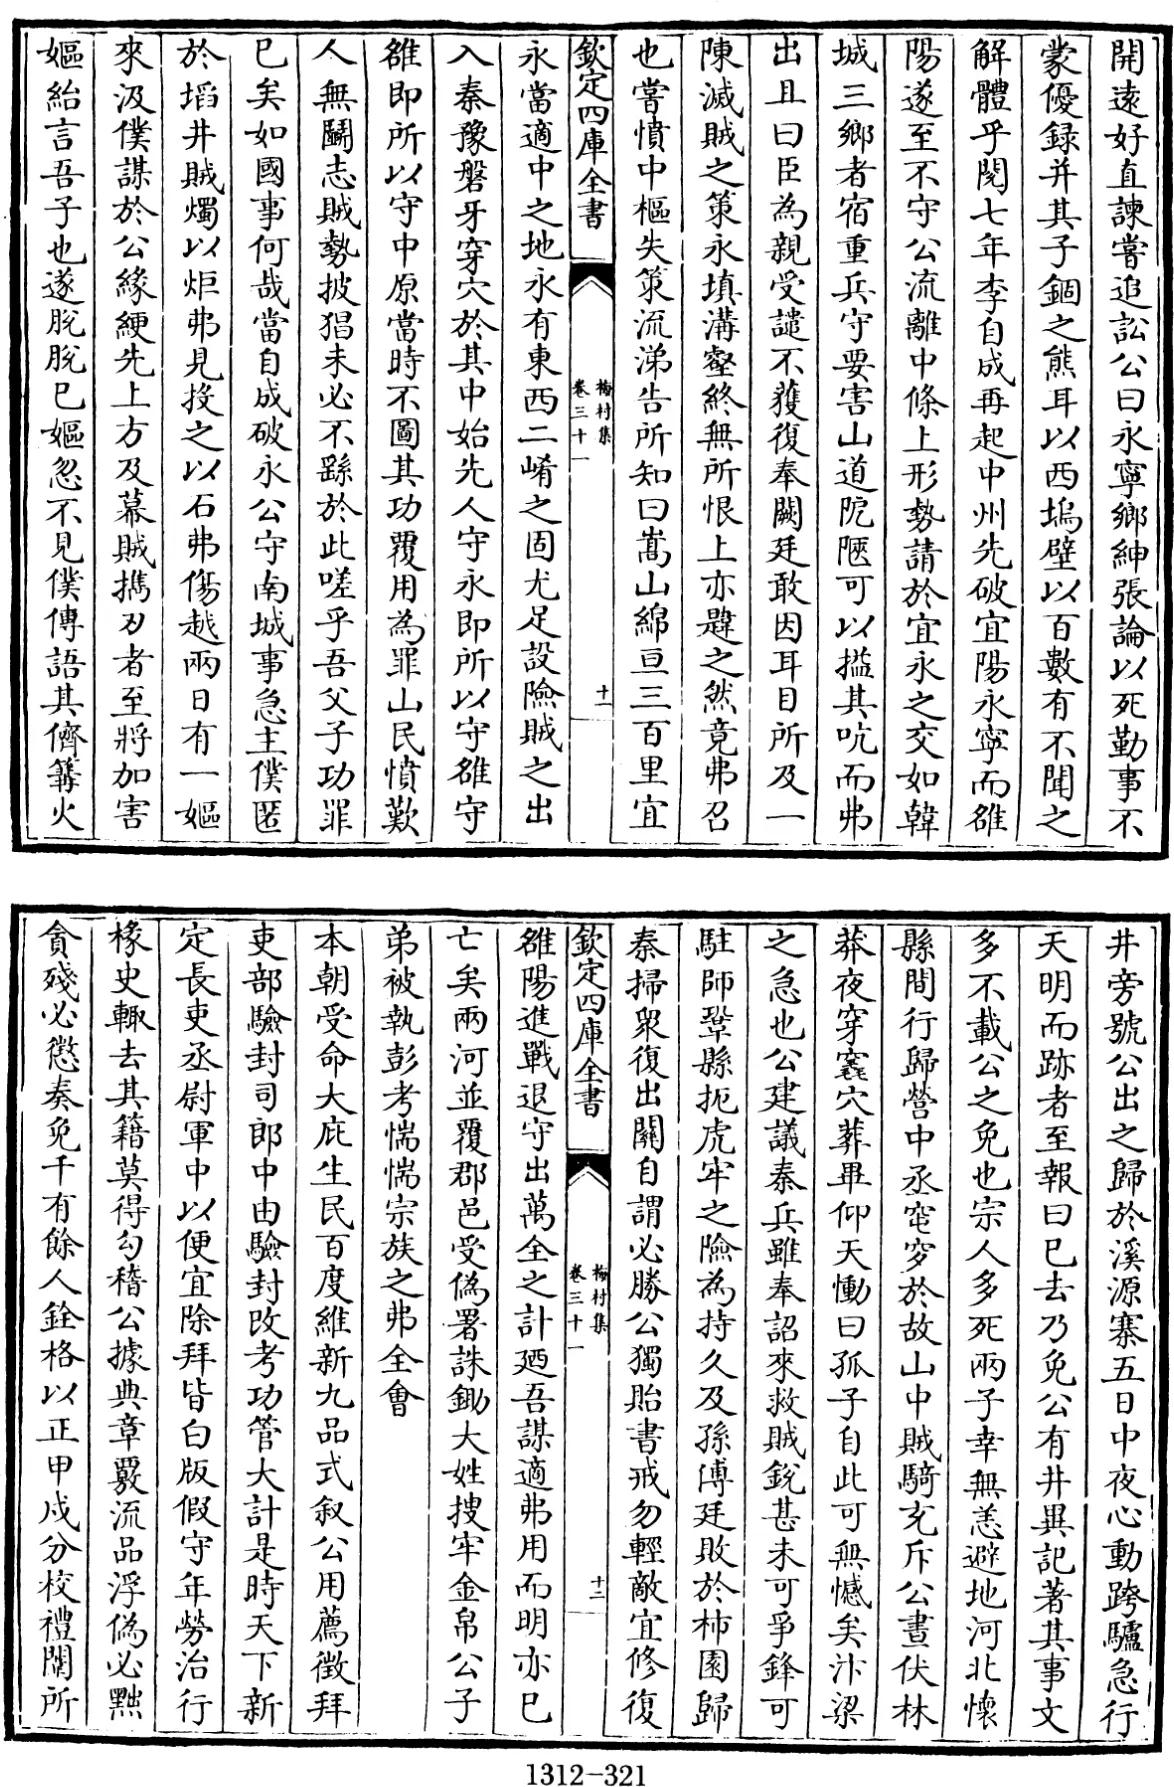 開遠好直諫嘗追訟公曰永寧鄉紳張論以死勤事不
蒙優録并其子錮之熊耳以西塢壁以百數有不聞之
解體乎閱七年李自成再起中州先破宜陽永寧而雒
陽遂至不守公流離中條上形勢請於宜永之交如韓
城三鄉者宿重兵守要害山道阨陋可以搤其吭而弗
出且曰臣為親受譴不獲復奉闕廷敢因耳目所及一
陳滅賊之策永填溝壑終無所恨上亦韙之然竟弗召
也嘗憤中樞失策流涕告所知曰嵩山綿亘三百里宜
欽定四庫全書
梅村集
卷三十一
十一
永當適中之地永有東西二崤之固尤足設險賊之出
入秦豫磐牙穿穴於其中始先人守永即所以守雒守
雒即所以守中原當時不圖其功覆用為罪山民憤歎
人無鬭志賊勢披猖未必不繇於此嗟乎吾父子功罪
已矣如國事何哉當自成破永公守南城事急主僕匿
於塪井賊燭以炬弗見投之以石弗傷越兩日有一嫗
來汲僕謀於公緣綆先上方及幕賊攜刃者至將加害
嫗紿言吾子也遂脫脫已嫗忽不見僕傳語其儕篝火
井旁號公出之歸於溪源寨五日中夜心動跨驢急行
天明而跡者至報曰已去乃免公有井異記著其事文
多不載公之免也宗人多死兩子幸無恙避地河北懷
縣間行歸營中丞窀穸於故山中賊騎充斥公晝伏林
莽夜穿窀穴葬畢仰天慟曰孤子自此可無憾矣汴梁
之急也公建議秦兵雖奉詔來救賊銳甚未可爭鋒可
駐師鞏縣扼虎牢之險為持久及孫傅廷敗於柿園歸
秦掃衆復出關自謂必勝公獨貽書戒勿輕敵宜修復
欽定四庫全書
梅村集
卷三十一
十二
雒陽進戰退守出萬全之計廼吾謀適弗用而明亦已
亡矣兩河並覆郡邑受偽署誅鋤大姓搜牢金帛公子
弟被執彭考惴惴宗族之弗全會
本朝受命大庇生民百度維新九品式叙公用薦徵拜
吏部驗封司郎中由驗封改考功管大計是時天下新
定長吏丞尉軍中以便宜除拜皆白版假守年勞治行
椽史輙去其籍莫得勾稽公據典章覈流品浮偽必黜
貪殘必懲奏免千有餘人銓格以正甲戍分校禮闈所